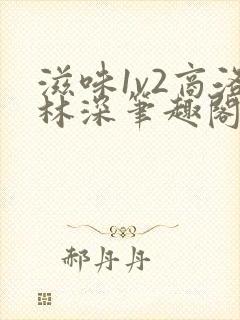 滋味1v2高洛
林深笔趣阁
郝丹丹